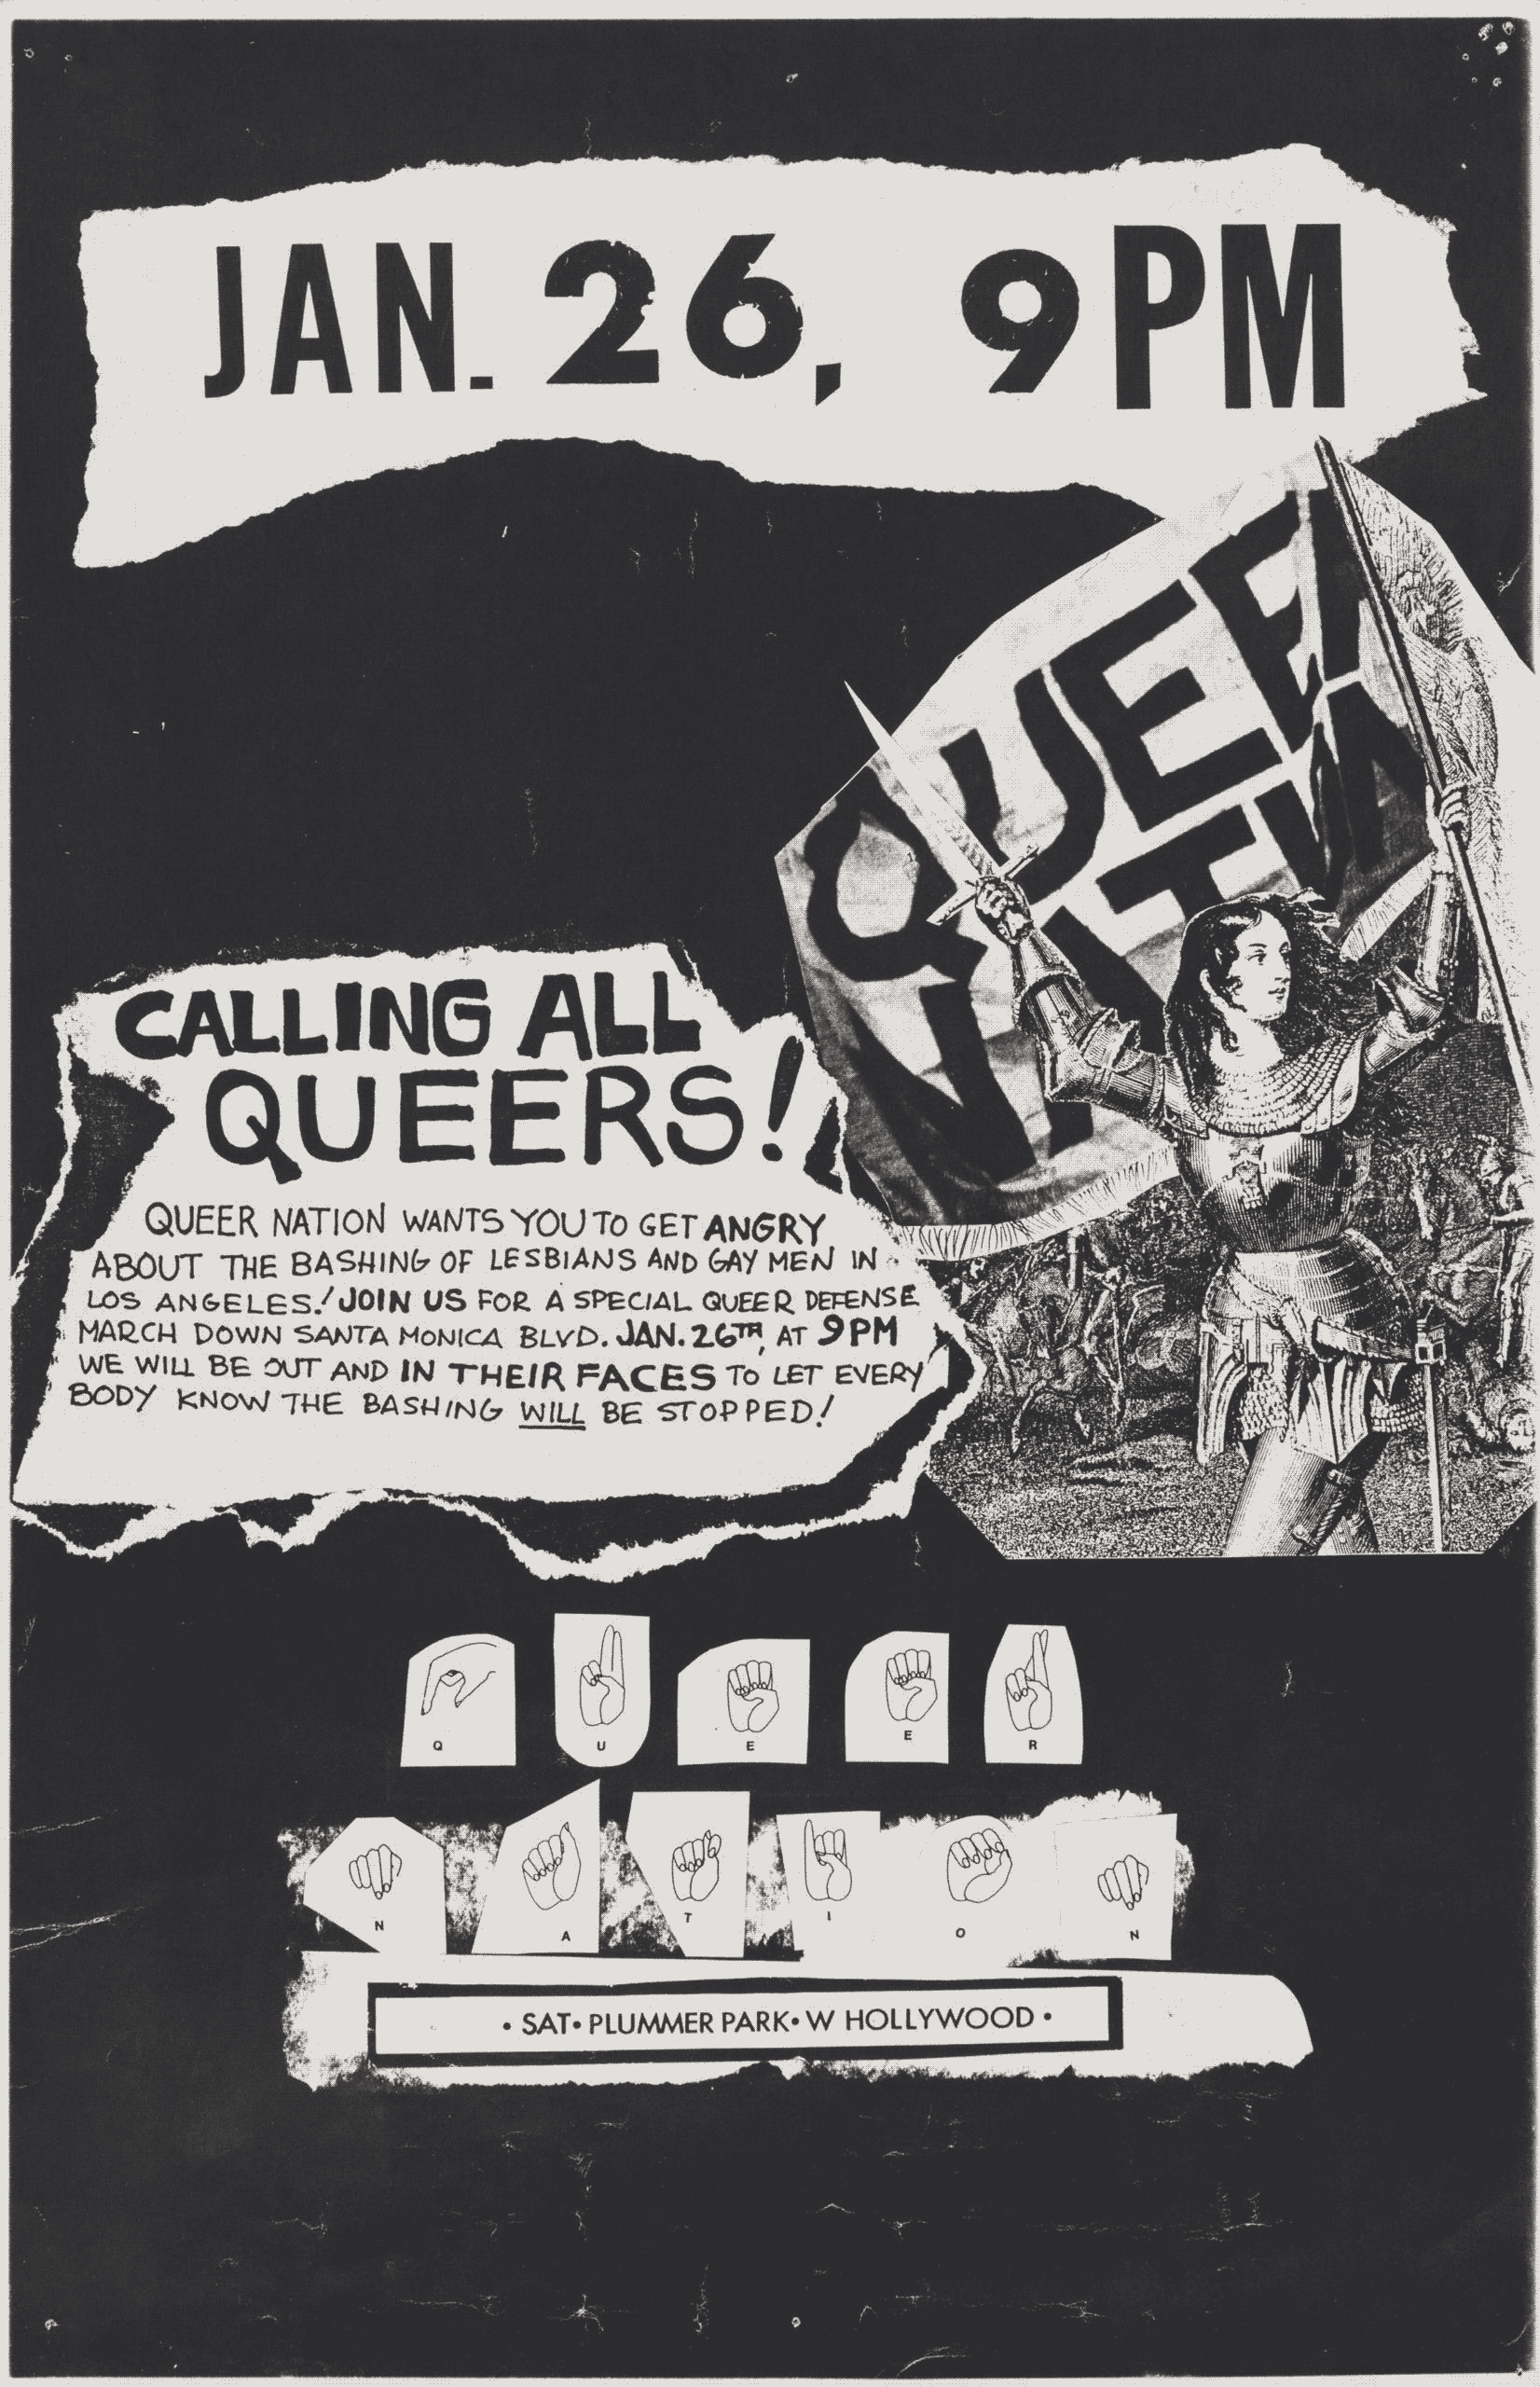 JAN. 26, 9PM
QUEER
NATION
CALLING ALL
QUEERS!
QUEER NATION WANTS YOU TO GET ANGRY
ABOUT THE BASHING OF LESBIANS AND GAY MEN IN
LOS ANGELES! JOIN US FOR A SPECIAL QUEER DEFENSE
MARCH DOWN SANTA MONICA BLVD. JAN. 26TH, AT 9PM
WE WILL BE OUT AND IN THEIR FACES TO LET EVERY
BODY KNOW THE BASHING WILL BE STOPPED!
Q U E E R
N A T I O N
• SAT• PLUMMER PARK• W HOLLYWOOD •